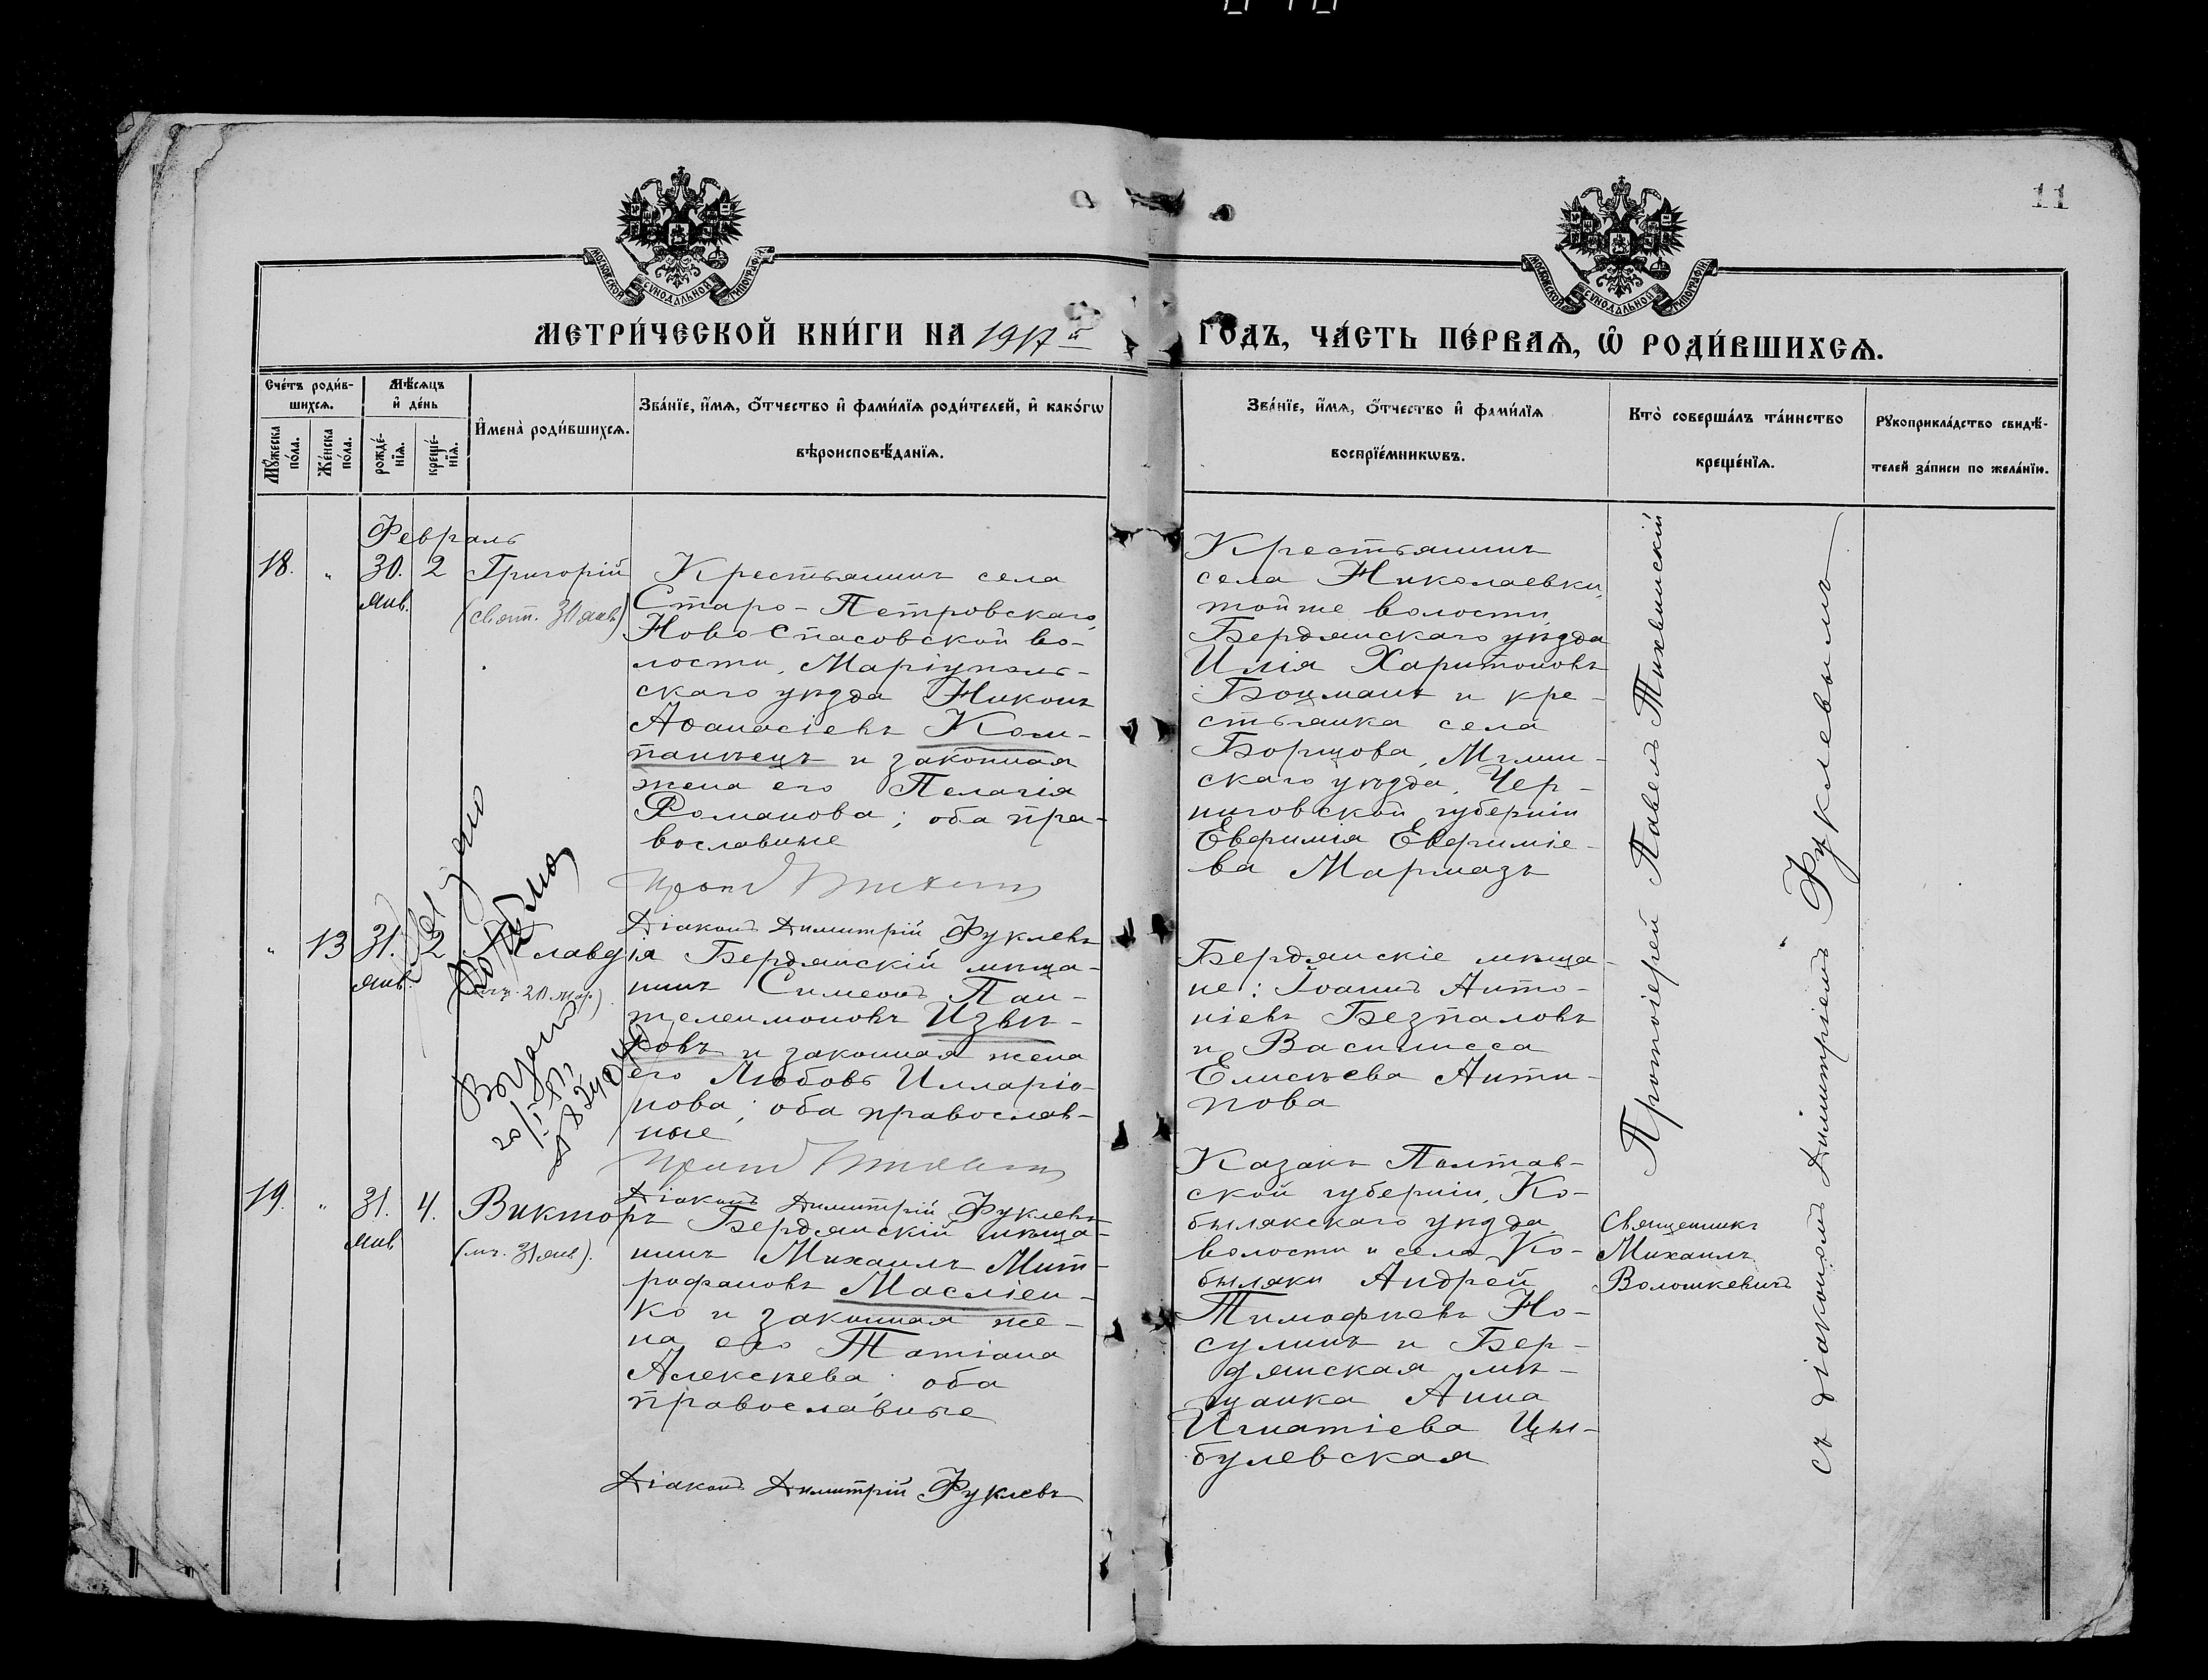 11
МОСКОВСКОЙ СѴНОДАЛЬНОЙ ТИПОГРАФІИ
МОСКОВСКОЙ СѴНОДАЛЬНОЙ ТИПОГРАФІИ
МЕТРИ́ЧЕСКОЙ КНИ́ГИ НА 1917й
ГО́ДЪ, ЧА́СТЬ ПЕ́РВАѦ, Ѽ РОДИ́ВШИХСѦ.
Сче́тъ роди́в-
шихсѧ.
Мꙋ́жеска
по́ла.
Же́нска
по́ла.
Мѣ́сѧцъ
и҆ де́нь
рожде́-
нїѧ.
креще́-
нїѧ.
И҆мена̀ роди́вшихсѧ.
Зва́нїе, и҆́мѧ, ѻ҆́тчество и҆ фами́лїѧ роди́телей, и҆ како́гѡ
вѣроисповѣ́данїѧ.
Зва́нїе, и҆́мѧ, ѻ҆́тчество и҆ фами́лїѧ
воспрїе́мникѡвъ.
Кто̀ соверша́лъ та́инство
креще́нїѧ.
Рꙋкоприкла́дство свидѣ́-
телей за́писи по жела́нїю.
Февраль
18. " 30. 2 Григорій
янв.
(свят. 30 янв)
Крестьянинъ села
Старо-Петровскаго,
Новоспасовской во-
лости, Маріуполь-
скаго уѣзда Никонъ
Аѳанасіевъ Ком-
панѣецъ и законная
жена его Пелагія
Романова; оба пра-
вославные
Діаконъ Димитрій Фуклевъ
Крестьянинъ
села Николаевки,
тойже волости,
Бердянскаго уѣзда
Илія Харитоновъ
Боцманъ и кре-
стьянка села
Борщова, Мглин-
скаго уѣзда, Чер-
ниговской губерніи
Евфимія Евфиміе-
ва Мармазъ
Протоіерей Павелъ Тихвинскій
съ діакономъ Димитріемъ Фуклевымъ
" 13 31. 2 Клавдія
янв.
20 мар).
Бердянскій мѣща-
нинъ Симеонъ Пан-
телеимоновъ Извѣ-
ковъ и законная жена
его Любовь Илларіо-
нова; оба православ-
ные
Діаконъ Димитрій Фуклевъ
Бердянскіе мѣща-
не: Іоаннъ Анто-
ніевъ Безпаловъ
и Василисса
Елисѣева Анти-
пова
19. " 31. 4. Викторъ
янв
(мч. 31 янв).
Бердянскій мѣща-
нинъ Михаилъ Мит-
рофановъ Масліен-
ко и законная же-
на его Татіана
Алексѣева; оба
православные
Діаконъ Димитрій Фуклевъ
Казакъ Полтав-
ской губерніи, Ко-
былякскаго уѣзда,
волости и села Ко-
быляки Андрей
Тимофѣевъ Но-
сулинъ и Бер-
дянская мѣ-
щанка Анна
Игнатіева Цы-
булевская
Священникъ
Михаилъ
Волошкевичъ